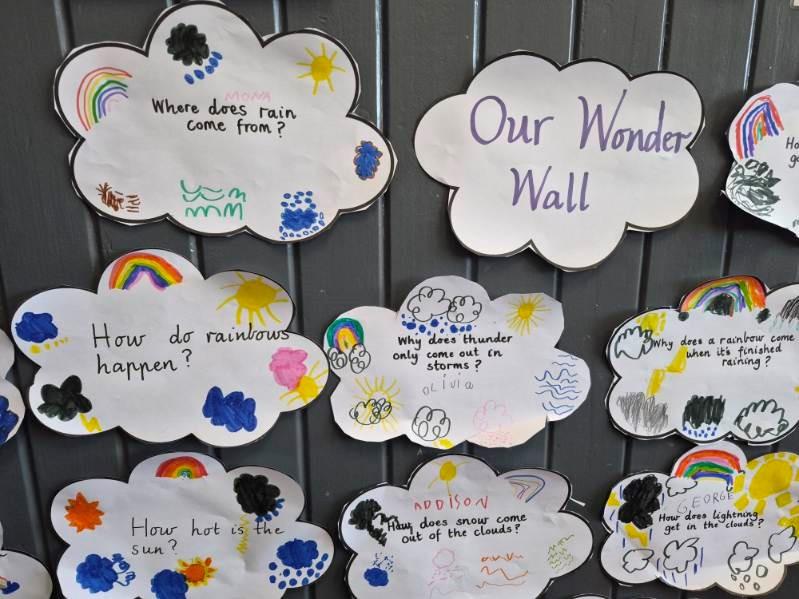 MONA
Where does rain
come from?
Our Wonder
Wall
How do rainbows
happen?
Why does thunder
only come out in
storms?
OLiVia
Why does a rainbow come
when it's finished
raining?
How hot is the
sun?
ADDISON
How does snow come
out of the clouds?
GEORGE
How does lightning
get in the clouds?